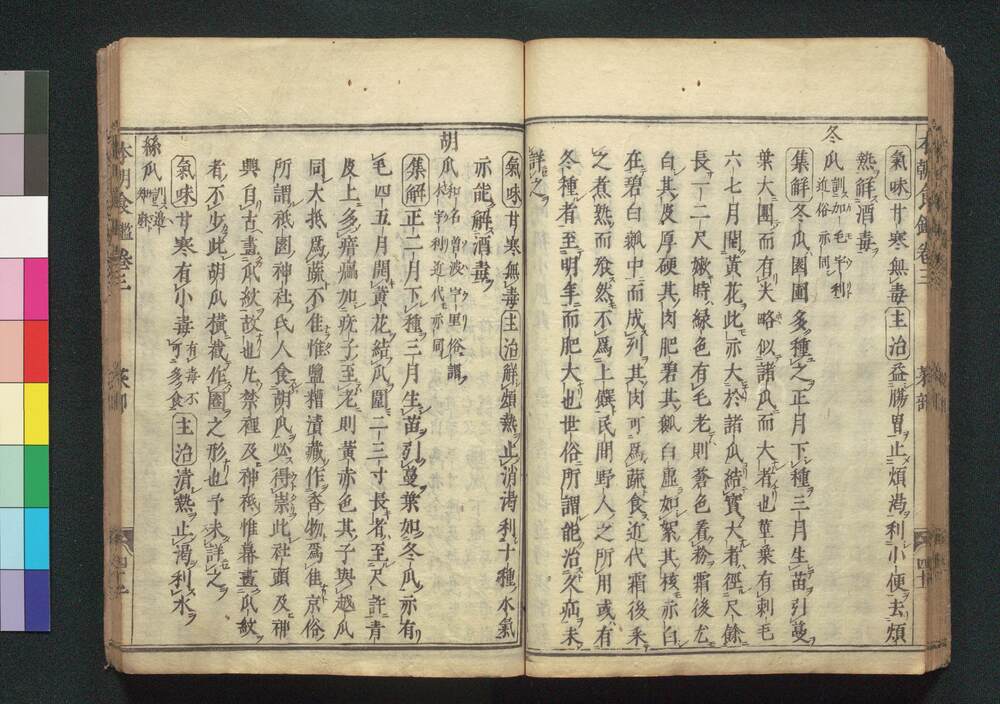 本朝食鑑卷三　菜部　四十
氣味甘寒無毒主治益腸胃止煩渴利小便去煩
熱解酒毒
冬瓜訓加毛宇利近俗亦同
集解冬瓜園圃多種之正月下種三月生苗引蔓
葉大團而有尖略似諸瓜而大者也莖葉有刺毛
六七月開黃花此亦大於諸瓜結實大者徑尺餘
長一二尺嫩時綠色有毛老則蒼色看粉霜後尤
白其皮厚硬其肉肥碧其瓤白虛如絮其核亦白
在碧白瓤中而成列其肉可爲蔬食近代霜後采
之煮熟而飡然不爲上饌民間野人之所用或有
冬種者至明年而肥大也世俗所謂能治久病未
詳之
氣味甘寒無毒主治鮮煩熱止消渴利十種水氣
亦能解酒毒
胡瓜和名曾波宇里俗謂
集解正二月下種三月生苗引蔓葉如冬瓜亦有
毛四五月開黃花結瓜圍二三寸長者至尺許青
皮上多㾦㿔如疣子至老則黃赤色其子與越瓜
同大抵爲蔬不佳惟鹽糟漬藏作香物爲佳京俗
所謂祇園神社氏人食胡瓜必得祟此社頭及神
輿自古畫瓜紋故也凡禁裡及神祇惟幕畫瓜紋
者不少此胡瓜橫截作圈之形也予未詳之
氣味甘寒有小毒有毒不可多食主治淸熱止渴利水
絲瓜
本朝食鑑卷三　菜部　四十